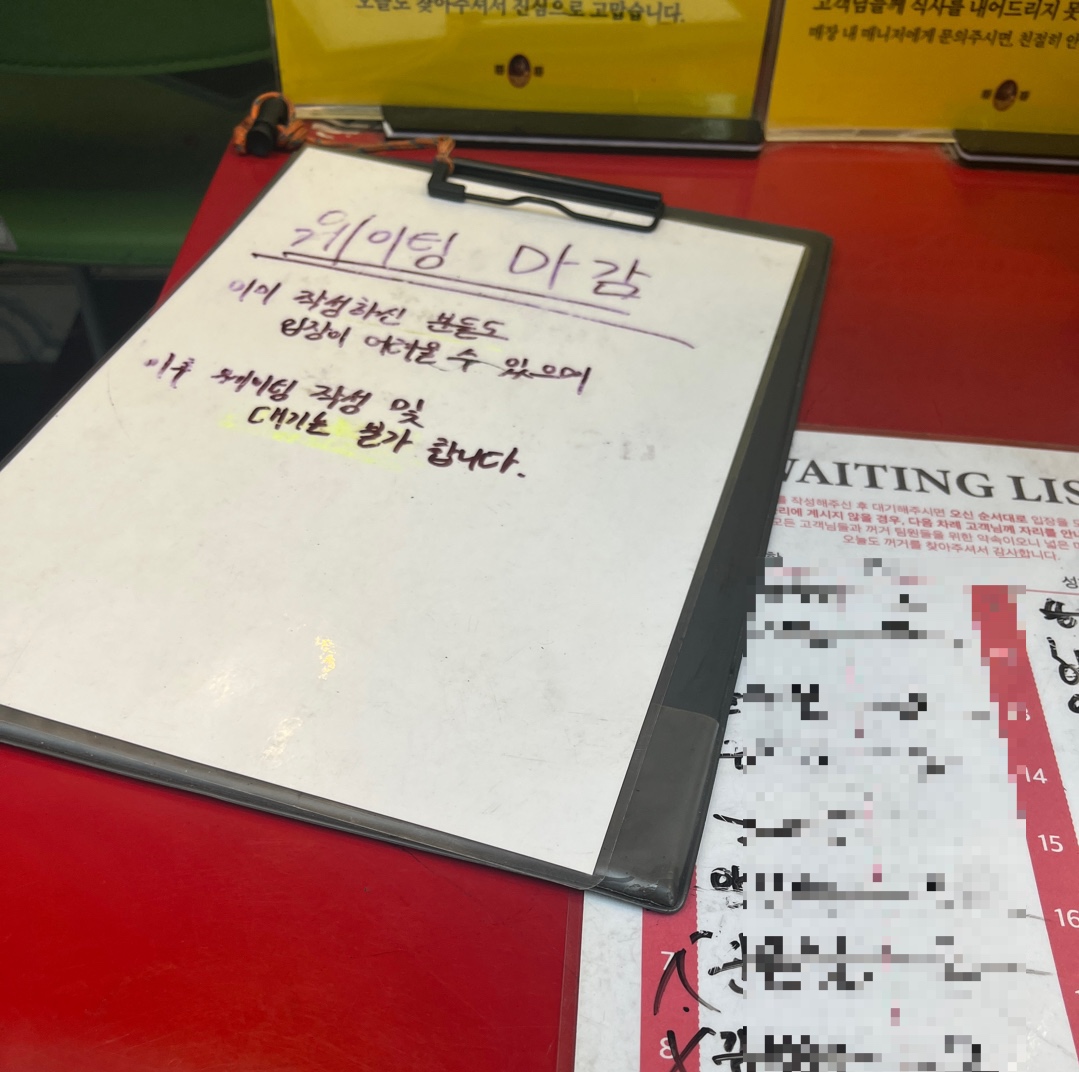 오늘도 찾아주셔서 진심으로 고맙습니다.
고객님들께 식사를 내어드리지 못
매장 내 매니저에게 문의주시면, 친절히 안
웨이팅 마감
이미 작성하신 분들도
입장이 어려울 수 있으며
이후 웨이팅 작성 및
대기는 불가 합니다.
WAITING LIS
를 작성해주신 후 대기해주시면 오신 순서대로 입장을 도
자리에 계시지 않을 경우, 다음 차례 고객님께 자리를 안내
모든 고객님들과 꺼거 팀원들을 위한 약속이오니 넓은
오늘도 꺼거를 찾아주셔서 감사합니다.
성
14
15
16
7
8